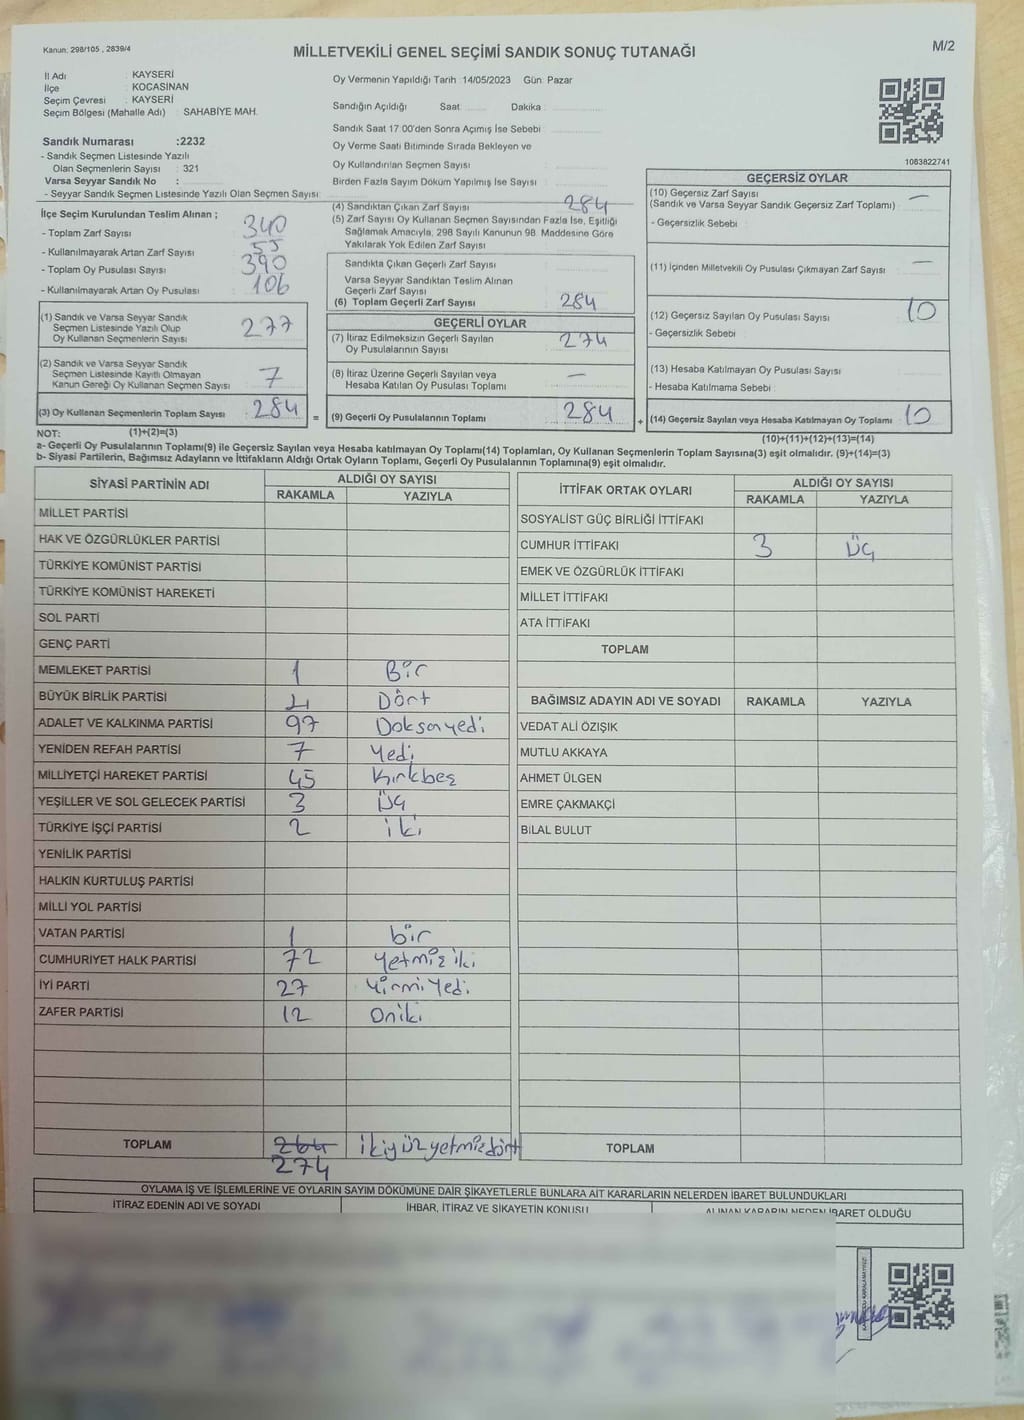 Kanun: 298/105 , 2839/4
MİLLETVEKİLİ GENEL SEÇİMİ SANDIK SONUÇ TUTANAĞI
M/2
İl Adı : KAYSERİ
İlçe : KOCASİNAN
Seçim Çevresi : KAYSERİ
Seçim Bölgesi (Mahalle Adı) : SAHABİYE MAH.
Sandık Numarası :2232
- Sandık Seçmen Listesinde Yazılı
Olan Seçmenlerin Sayısı : 321
Varsa Seyyar Sandık No :
- Seyyar Sandık Seçmen Listesinde Yazılı Olan Seçmen Sayısı :
Oy Vermenin Yapıldığı Tarih :14/05/2023 Gün: Pazar
Sandığın Açıldığı Saat ...... Dakika :
Sandık Saat 17:00'den Sonra Açımış İse Sebebi :
Oy Verme Saati Bitiminde Sırada Bekleyen ve
Oy Kullandırılan Seçmen Sayısı :
Birden Fazla Sayım Döküm Yapılmış İse Sayısı :
1083822741
İlçe Seçim Kurulundan Teslim Alınan ;
- Toplam Zarf Sayısı : 340
- Kullanılmayarak Artan Zarf Sayısı : 55
- Toplam Oy Pusulası Sayısı : 390
- Kullanılmayarak Artan Oy Pusulası : 106
(1) Sandık ve Varsa Seyyar Sandık
Seçmen Listesinde Yazılı Olup
Oy Kullanan Seçmenlerin Sayısı : 277
(2) Sandık ve Varsa Seyyar Sandık
Seçmen Listesinde Kayıtlı Olmayan
Kanun Gereği Oy Kullanan Seçmen Sayısı : 7
(3) Oy Kullanan Seçmenlerin Toplam Sayısı : 284
(4) Sandıktan Çıkan Zarf Sayısı : 284
(5) Zarf Sayısı Oy Kullanan Seçmen Sayısından Fazla İse, Eşitliği
Sağlamak Amacıyla, 298 Sayılı Kanunun 98. Maddesine Göre
Yakılarak Yok Edilen Zarf Sayısı :
Sandıkta Çıkan Geçerli Zarf Sayısı :
Varsa Seyyar Sandıktan Teslim Alınan
Geçerli Zarf Sayısı :
(6) Toplam Geçerli Zarf Sayısı : 284
GEÇERLİ OYLAR
(7) İtiraz Edilmeksizin Geçerli Sayılan
Oy Pusulalarının Sayısı : 274
(8) İtiraz Üzerine Geçerli Sayılan veya
Hesaba Katılan Oy Pusulası Toplamı : —
= (9) Geçerli Oy Pusulalarının Toplamı : 284
GEÇERSİZ OYLAR
(10) Geçersiz Zarf Sayısı : —
(Sandık ve Varsa Seyyar Sandık Geçersiz Zarf Toplamı)
- Geçersizlik Sebebi :
(11) İçinden Milletvekili Oy Pusulası Çıkmayan Zarf Sayısı : —
(12) Geçersiz Sayılan Oy Pusulası Sayısı : 10
- Geçersizlik Sebebi :
(13) Hesaba Katılmayan Oy Pusulası Sayısı :
- Hesaba Katılmama Sebebi :
+ (14) Geçersiz Sayılan veya Hesaba Katılmayan Oy Toplamı : 10
NOT: (1)+(2)=(3)
(10)+(11)+(12)+(13)=(14)
a- Geçerli Oy Pusulalarının Toplamı(9) ile Geçersiz Sayılan veya Hesaba katılmayan Oy Toplamı(14) Toplamları, Oy Kullanan Seçmenlerin Toplam Sayısına(3) eşit olmalıdır. (9)+(14)=(3)
b- Siyasi Partilerin, Bağımsız Adayların ve İttifakların Aldığı Ortak Oyların Toplamı, Geçerli Oy Pusulalarının Toplamına(9) eşit olmalıdır.
SİYASİ PARTİNİN ADI ALDIĞI OY SAYISI
RAKAMLA YAZIYLA
MİLLET PARTİSİ
HAK VE ÖZGÜRLÜKLER PARTİSİ
TÜRKİYE KOMÜNİST PARTİSİ
TÜRKİYE KOMÜNİST HAREKETİ
SOL PARTİ
GENÇ PARTİ
MEMLEKET PARTİSİ 1 Bir
BÜYÜK BİRLİK PARTİSİ 4 Dört
ADALET VE KALKINMA PARTİSİ 97 Doksanyedi
YENİDEN REFAH PARTİSİ 7 Yedi
MİLLİYETÇİ HAREKET PARTİSİ 45 Kırkbeş
YEŞİLLER VE SOL GELECEK PARTİSİ 3 Üç
TÜRKİYE İŞÇİ PARTİSİ 2 iki
YENİLİK PARTİSİ
HALKIN KURTULUŞ PARTİSİ
MİLLİ YOL PARTİSİ
VATAN PARTİSİ 1 bir
CUMHURİYET HALK PARTİSİ 72 Yetmiş iki
İYİ PARTİ 27 Yirmi Yedi
ZAFER PARTİSİ 12 Oniki
TOPLAM 264 ikiyüzyetmişdört
274
İTTİFAK ORTAK OYLARI ALDIĞI OY SAYISI
RAKAMLA YAZIYLA
SOSYALİST GÜÇ BİRLİĞİ İTTİFAKI
CUMHUR İTTİFAKI 3 Üç
EMEK VE ÖZGÜRLÜK İTTİFAKI
MİLLET İTTİFAKI
ATA İTTİFAKI
TOPLAM
BAĞIMSIZ ADAYIN ADI VE SOYADI RAKAMLA YAZIYLA
VEDAT ALİ ÖZIŞIK
MUTLU AKKAYA
AHMET ÜLGEN
EMRE ÇAKMAKÇİ
BİLAL BULUT
TOPLAM
OYLAMA İŞ VE İŞLEMLERİNE VE OYLARIN SAYIM DÖKÜMÜNE DAİR ŞİKAYETLERLE BUNLARA AİT KARARLARIN NELERDEN İBARET BULUNDUKLARI
İTİRAZ EDENİN ADI VE SOYADI İHBAR, İTİRAZ VE ŞİKAYETİN KONUSU ALINAN KARARIN NEDEN İBARET OLDUĞU